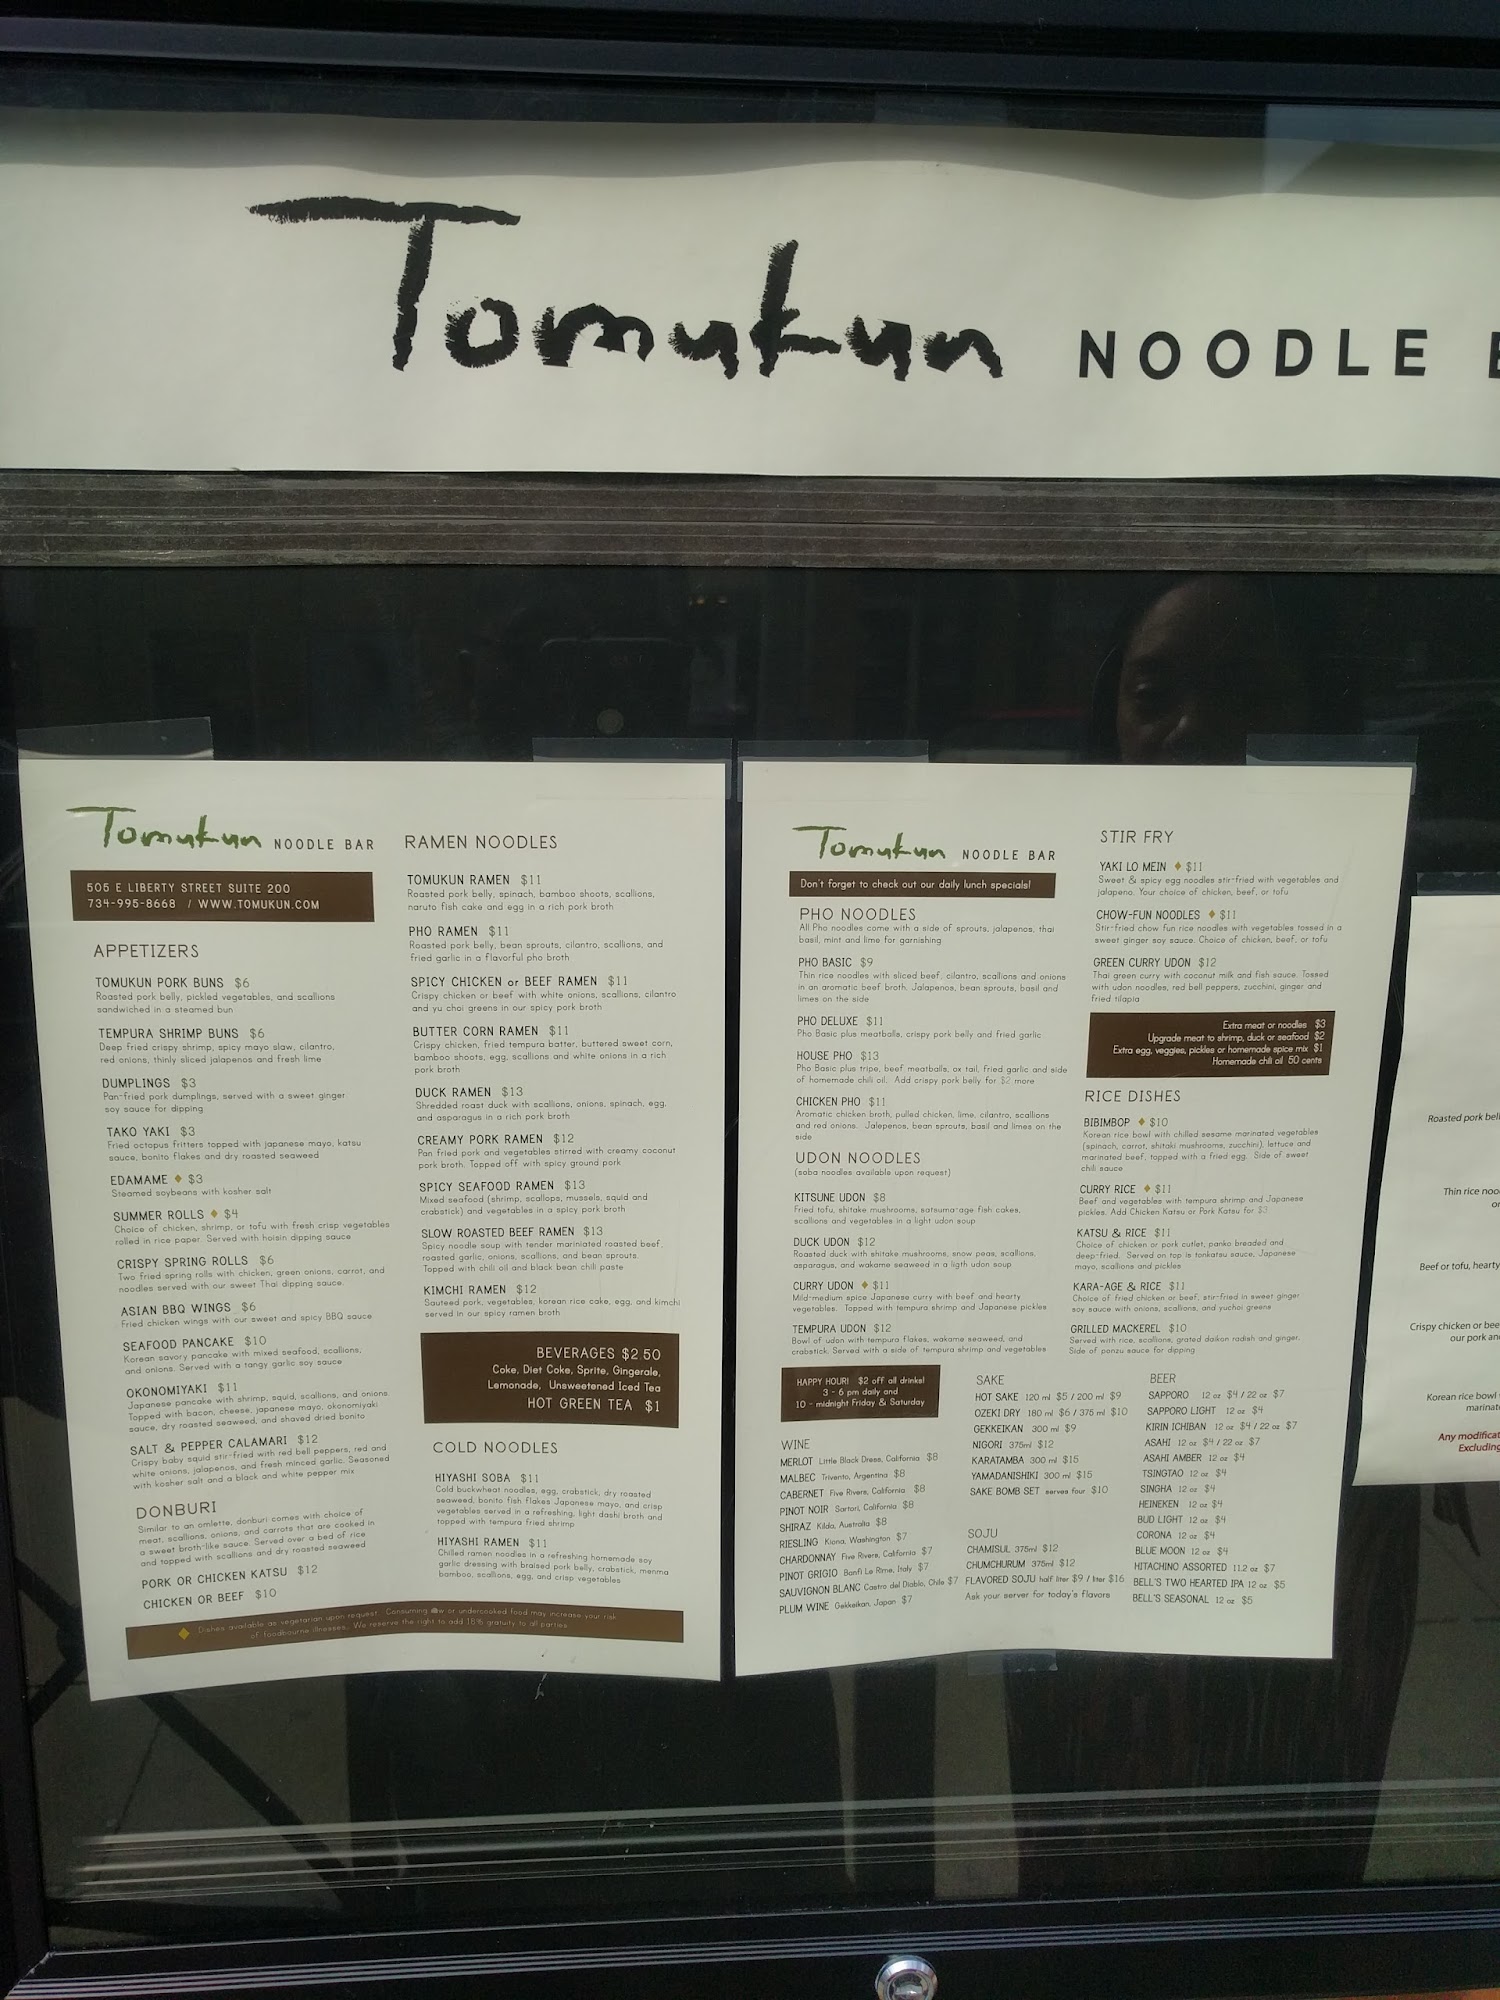 Tomukun NOODLE
Tomukun NOODLE BAR
505 E LIBERTY STREET SUITE 200
734-995-8668 / WWW.TOMUKUN.COM
APPETIZERS
TOMUKUN PORK BUNS $6
Roasted pork belly, pickled vegetables, and scallions
sandwiched in a steamed bun
TEMPURA SHRIMP BUNS $6
Deep fried crispy shrimp, spicy mayo slaw, cilantro,
red onions, thinly sliced jalapenos and fresh lime
DUMPLINGS $3
Pan-fried pork dumplings, served with a sweet ginger
soy sauce for dipping
TAKO YAKI $3
Fried octopus fritters topped with japanese mayo, katsu
sauce, bonito flakes and dry roasted seaweed
EDAMAME ◆ $3
Steamed soybeans with kosher salt
SUMMER ROLLS ◆ $4
Choice of chicken, shrimp, or tofu with fresh crisp vegetables
rolled in rice paper. Served with hoisin dipping sauce
CRISPY SPRING ROLLS $6
Two fried spring rolls with chicken, green onions, carrot, and
noodles served with our sweet Thai dipping sauce.
ASIAN BBQ WINGS $6
Fried chicken wings with our sweet and spicy BBQ sauce
SEAFOOD PANCAKE $10
Korean savory pancake with mixed seafood, scallions,
and onions. Served with a tangy garlic soy sauce
OKONOMIYAKI $11
Japanese pancake with shrimp, squid, scallions, and onions.
Topped with bacon, cheese, japanese mayo, okonomiyaki
sauce, dry roasted seaweed, and shaved dried bonito
SALT & PEPPER CALAMARI $12
Crispy baby squid stir-fried with red bell peppers, red and
white onions, jalapenos, and fresh minced garlic. Seasoned
with kosher salt and a black and white pepper mix
DONBURI
Similar to an omlette, donburi comes with choice of
meat, scallions, onions, and carrots that are cooked in
a sweet broth-like sauce. Served over a bed of rice
and topped with scallions and dry roasted seaweed
PORK OR CHICKEN KATSU $12
CHICKEN OR BEEF $10
RAMEN NOODLES
TOMUKUN RAMEN $11
Roasted pork belly, spinach, bamboo shoots, scallions,
naruto fish cake and egg in a rich pork broth
PHO RAMEN $11
Roasted pork belly, bean sprouts, cilantro, scallions, and
fried garlic in a flavorful pho broth
SPICY CHICKEN or BEEF RAMEN $11
Crispy chicken or beef with white onions, scallions, cilantro
and yu choi greens in our spicy pork broth
BUTTER CORN RAMEN $11
Crispy chicken, fried tempura batter, buttered sweet corn,
bamboo shoots, egg, scallions and white onions in a rich
pork broth
DUCK RAMEN $13
Shredded roast duck with scallions, onions, spinach, egg,
and asparagus in a rich pork broth
CREAMY PORK RAMEN $12
Pan fried pork and vegetables stirred with creamy coconut
pork broth. Topped off with spicy ground pork
SPICY SEAFOOD RAMEN $13
Mixed seafood (shrimp, scallops, mussels, squid and
crabstick) and vegetables in a spicy pork broth
SLOW ROASTED BEEF RAMEN $13
Spicy noodle soup with tender mariniated roasted beef,
roasted garlic, onions, scallions, and bean sprouts.
Topped with chili oil and black bean chili paste
KIMCHI RAMEN $12
Sauteed pork, vegetables, korean rice cake, egg, and kimchi
served in our spicy ramen broth
BEVERAGES $2.50
Coke, Diet Coke, Sprite, Gingerale,
Lemonade, Unsweetened Iced Tea
HOT GREEN TEA $1
COLD NOODLES
HIYASHI SOBA $11
Cold buckwheat noodles, egg, crabstick, dry roasted
seaweed, bonito fish flakes Japanese mayo, and crisp
vegetables served in a refreshing, light dashi broth and
topped with tempura fried shrimp
HIYASHI RAMEN $11
Chilled ramen noodles in a refreshing homemade soy
garlic dressing with braised pork belly, crabstick, menma
bamboo, scallions, egg, and crisp vegetables
◆ Dishes available as vegetarian upon request. Consuming raw or undercooked food may increase your risk
of foodbourne illnesses. We reserve the right to add 18% gratuity to all parties
Tomukun NOODLE BAR
Don't forget to check out our daily lunch specials!
PHO NOODLES
All Pho noodles come with a side of sprouts, jalapenos, thai
basil, mint and lime for garnishing
PHO BASIC $9
Thin rice noodles with sliced beef, cilantro, scallions and onions
in an aromatic beef broth. Jalapenos, bean sprouts, basil and
limes on the side
PHO DELUXE $11
Pho Basic plus meatballs, crispy pork belly and fried garlic
HOUSE PHO $13
Pho Basic plus tripe, beef meatballs, ox tail, fried garlic and side
of homemade chili oil. Add crispy pork belly for $2 more
CHICKEN PHO $11
Aromatic chicken broth, pulled chicken, lime, cilantro, scallions
and red onions. Jalepenos, bean sprouts, basil and limes on the
side
UDON NOODLES
(soba noodles available upon request)
KITSUNE UDON $8
Fried tofu, shitake mushrooms, satsuma-age fish cakes,
scallions and vegetables in a light udon soup
DUCK UDON $12
Roasted duck with shitake mushrooms, snow peas, scallions,
asparagus, and wakame seaweed in a ligth udon soup
CURRY UDON ◆ $11
Mild-medium spice Japanese curry with beef and hearty
vegetables. Topped with tempura shrimp and Japanese pickles
TEMPURA UDON $12
Bowl of udon with tempura flakes, wakame seaweed, and
crabstick. Served with a side of tempura shrimp and vegetables
HAPPY HOUR! $2 off all drinks!
3 - 6 pm daily and
10 - midnight Friday & Saturday
WINE
MERLOT Little Black Dress, California $8
MALBEC Trivento, Argentina $8
CABERNET Five Rivers, California $8
PINOT NOIR Sartori, California $8
SHIRAZ Kilda, Australia $8
RIESLING Kiona, Washington $7
CHARDONNAY Five Rivers, California $7
PINOT GRIGIO Banfi Le Rime, Italy $7
SAUVIGNON BLANC Castro del Diablo, Chile $7
PLUM WINE Gekkeikan, Japan $7
SAKE
HOT SAKE 120 ml $5 / 200 ml $9
OZEKI DRY 180 ml $6 / 375 ml $10
GEKKEIKAN 300 ml $9
NIGORI 375ml $12
KARATAMBA 300 ml $15
YAMADANISHIKI 300 ml $15
SAKE BOMB SET serves four $10
SOJU
CHAMISUL 375ml $12
CHUMCHURUM 375ml $12
FLAVORED SOJU half liter $9 / liter $16
Ask your server for today's flavors
STIR FRY
YAKI LO MEIN ◆ $11
Sweet & spicy egg noodles stir-fried with vegetables and
jalapeno. Your choice of chicken, beef, or tofu
CHOW-FUN NOODLES ◆ $11
Stir-fried chow fun rice noodles with vegetables tossed in a
sweet ginger soy sauce. Choice of chicken, beef, or tofu
GREEN CURRY UDON $12
Thai green curry with coconut milk and fish sauce. Tossed
with udon noodles, red bell peppers, zucchini, ginger and
fried tilapia
Extra meat or noodles $3
Upgrade meat to shrimp, duck or seafood $2
Extra egg, veggies, pickles or homemade spice mix $1
Homemade chili oil 50 cents
RICE DISHES
BIBIMBOP ◆ $10
Korean rice bowl with chilled sesame marinated vegetables
(spinach, carrot, shitaki mushrooms, zucchini), lettuce and
marinated beef, topped with a fried egg. Side of sweet
chili sauce
CURRY RICE ◆ $11
Beef, and vegetables with tempura shrimp and Japanese
pickles. Add Chicken Katsu or Pork Katsu for $3
KATSU & RICE $11
Choice of chicken or pork cutlet, panko breaded and
deep-fried. Served on top is tonkatsu sauce, Japanese
mayo, scallions and pickles
KARA-AGE & RICE $11
Choice of fried chicken or beef, stir-fried in sweet ginger
soy sauce with onions, scallions, and yuchoi greens
GRILLED MACKEREL $10
Served with rice, scallions, grated daikon radish and ginger.
Side of ponzu sauce for dipping
BEER
SAPPORO 12 oz $4 / 22 oz $7
SAPPORO LIGHT 12 oz $4
KIRIN ICHIBAN 12 oz $4 / 22 oz $7
ASAHI 12 oz $4 / 22 oz $7
ASAHI AMBER 12 oz $4
TSINGTAO 12 oz $4
SINGHA 12 oz $4
HEINEKEN 12 oz $4
BUD LIGHT 12 oz $4
CORONA 12 oz $4
BLUE MOON 12 oz $4
HITACHINO ASSORTED 11.2 oz $7
BELL'S TWO HEARTED IPA 12 oz $5
BELL'S SEASONAL 12 oz $5
Roasted pork
Thin rice
Beef or tofu, hearty
Crispy chicken or
our pork
Korean rice bowl
Any
Excluding